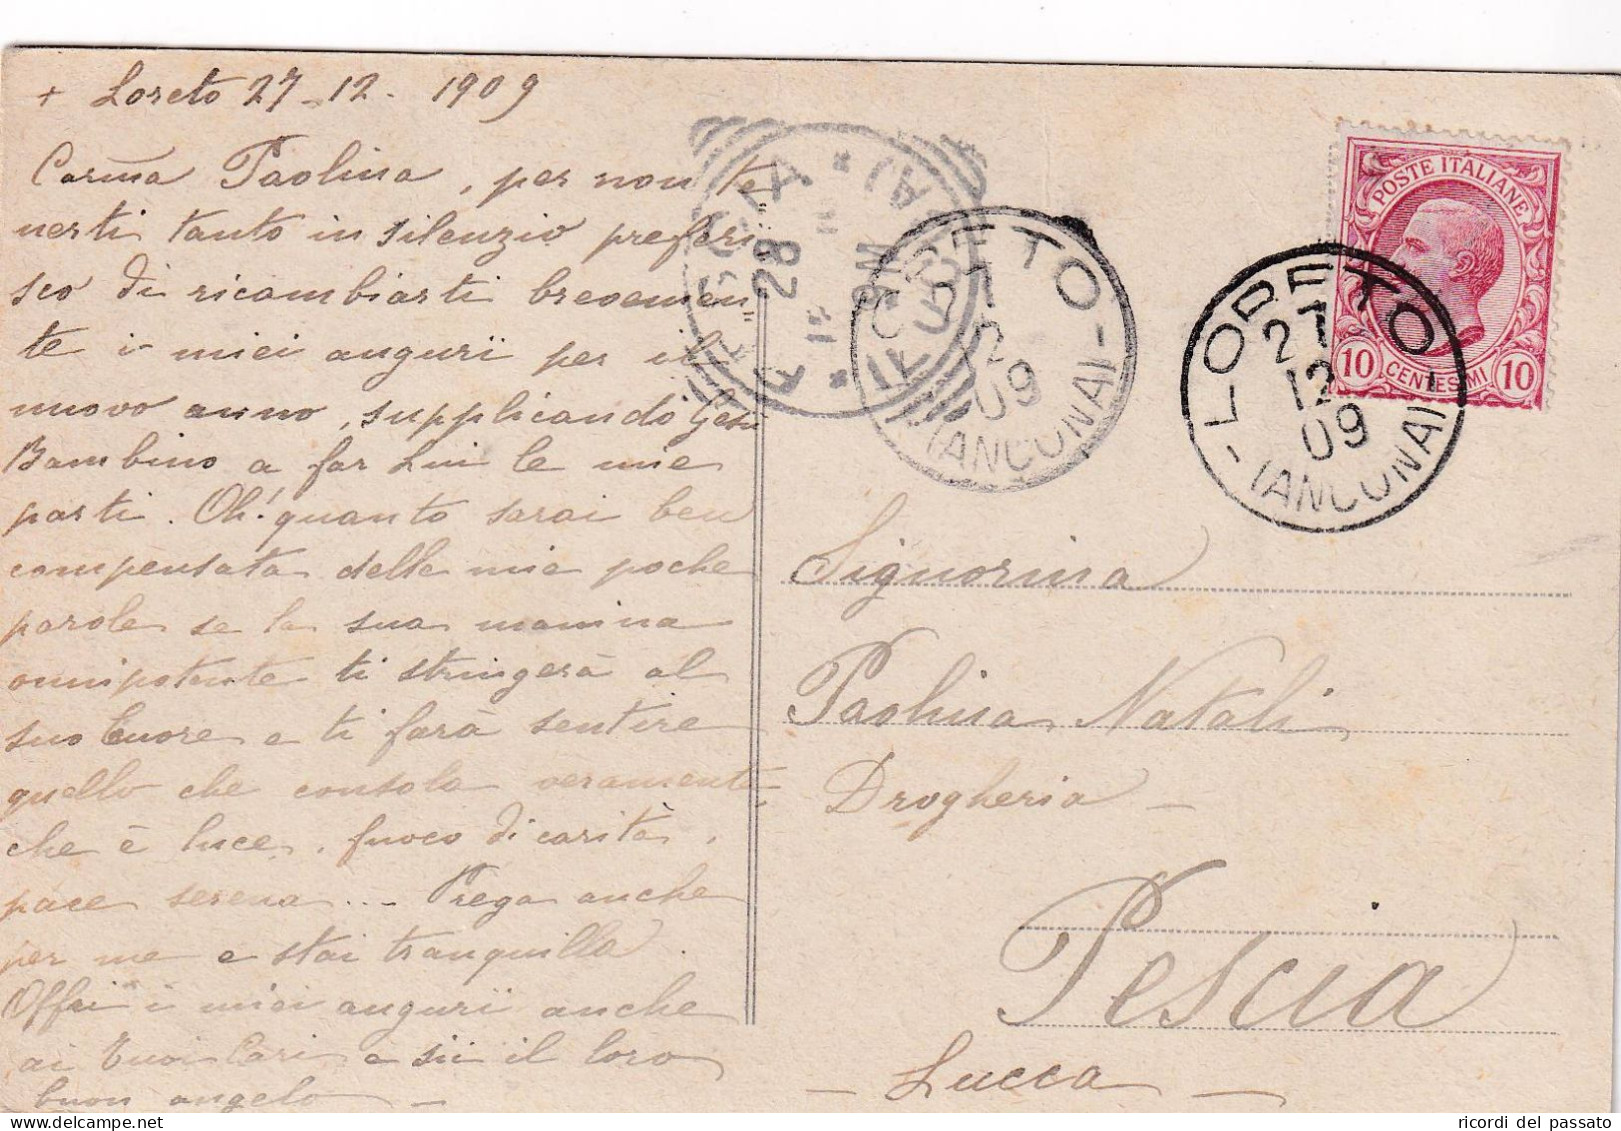 + Loreto 27-12. 1909
Carma Paolina, per non te
nerti tanto in silenzio preferi
sco di ricambiarti brevemen
te i miei augurii per il
nuovo anno, supplicando Gesù
Bambino a far Lui le mie
parti. Oh! quanto sarai ben
compensata delle mie poche
parole se la sua manina
onnipotente ti stringerà al
suo Cuore e ti farà sentire
quello che consola veramente
che è luce, fuoco di carità,
pace serena ... Prega anche
per me e stai tranquilla.
Offri i miei augurii anche
ai Tuoi Cari e sii il loro
buon angelo -
POSTE ITALIANE
10 CENTESIMI 10
LORETO
27
12
09
(ANCONA)
LORETO
27
12
09
(ANCONA)
28
9M
Signorina
Paolina Natali
Drogheria -
Pescia
- Lucca -
ricordi del passato